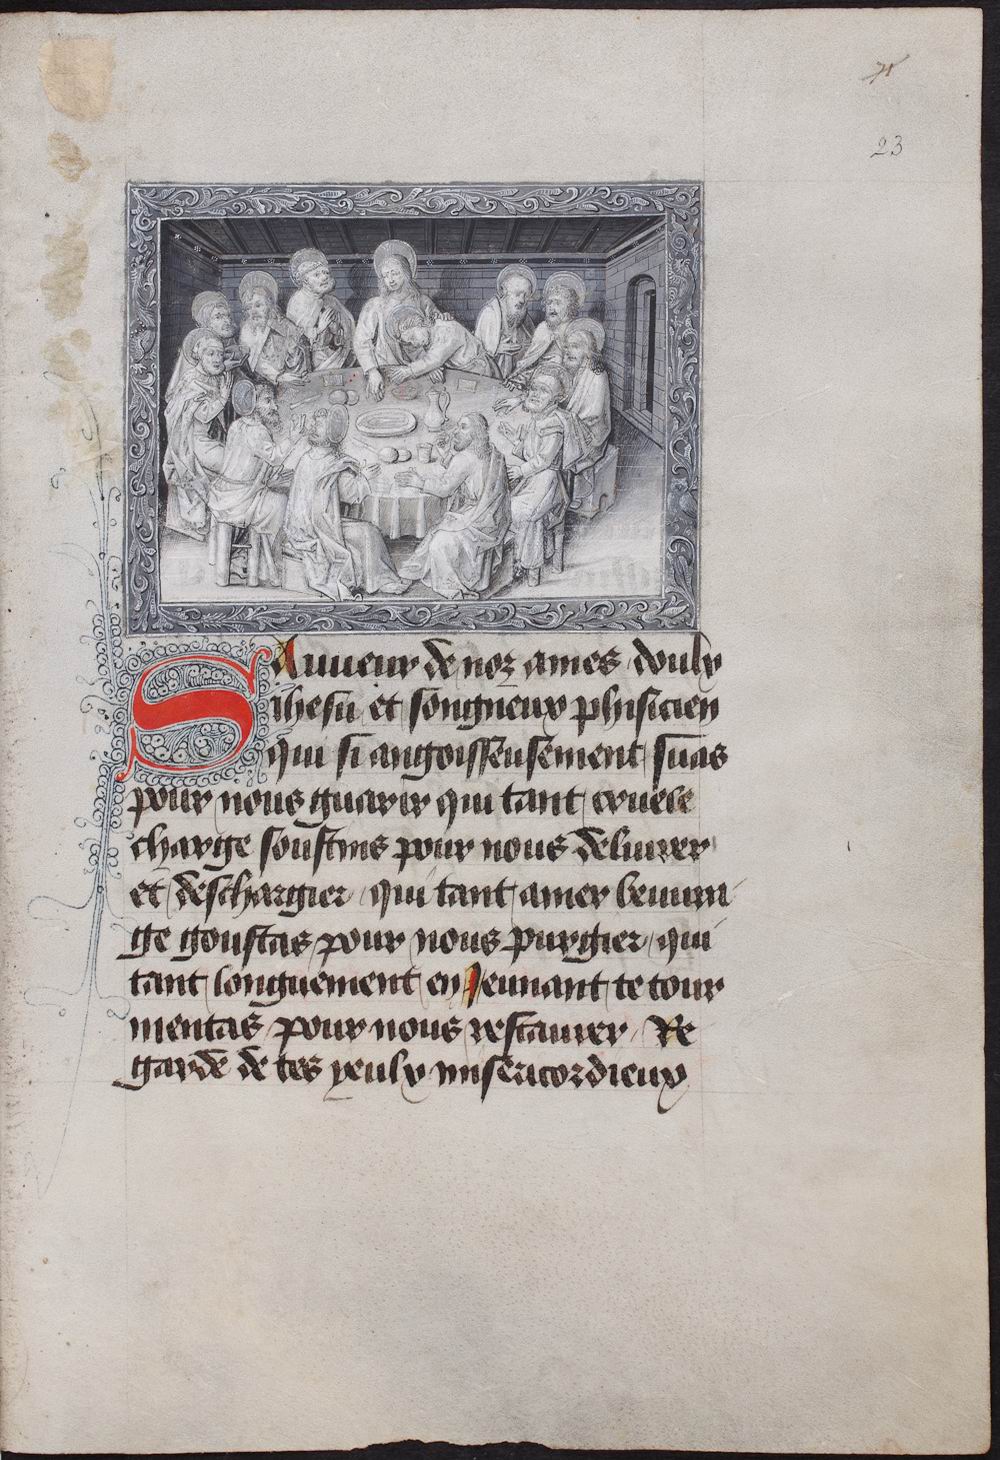 23
Sauueur de noz ames doulx
ihesu et songneux phisicien
qui si angoisseusement suas
pour nous guarir qui tant cruele
charge soustins pour nous deliurer
et deschargier qui tant amer beuura-
ge goustas pour nous purgier qui
tant longuement en Jeunant te tour
mentas pour nous restaurer Re
garde de tes yeulx misericordieux